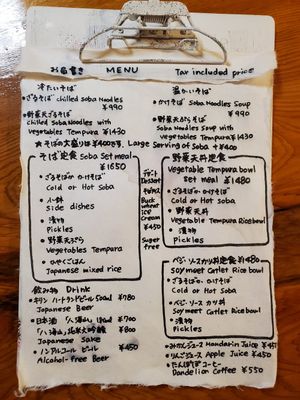 お品書き MENU Tax included price
冷たいそば
ざるそば chilled Soba Noodles
¥990
野菜天ざるそば
chilled Soba Noodles with
vegetables Tempura ¥1430
温かいそば
かけそば Soba Noodles Soup
¥990
野菜天ぷらそば
Soba Noodles Soup with
vegetables Tempura ¥1430
★そばの大盛りは¥400です。Large Serving of Soba ¥400
そば定食 Soba Set meal
¥1650
ざるそばかかけそば
Cold or Hot Soba
小鉢
Side dishes
漬物
Pickles
野菜天ぷら
Vegetables Tempura
ひゃくごはん
Japanese mixed rice
デザート
Dessert
Buck
wheat
ice
Cream
¥450
Sugar
free
野菜天丼定食
Vegetable Tempura bowl
set meal ¥1480
ざるそばかかけそば
Cold or Hot Soba
野菜天丼
Vegetable Tempura Rice bowl
漬物
Pickles
ベジ・ソースカツ丼定食 ¥1480
Soy meet Cutlet Rice bowl
ざるそばかかけそば
Cold or Hot Soba
ベジ・ソースカツ丼
Soy meet Cutlet Rice bowl
漬物
Pickles
飲み物 Drink
キリン ハートランドビール 500ml ¥780
Japanese Beer
日本酒 「八海山」 180ml ¥700
「八海山」純米大吟醸 ¥800
Japanese Sake
ノンアルコールビール ¥450
Alcohol-free Beer
みかんジュース Mandarin Juice ¥450
りんごジュース Apple Juice ¥450
たんぽぽコーヒー
Dandelion Coffee ¥550